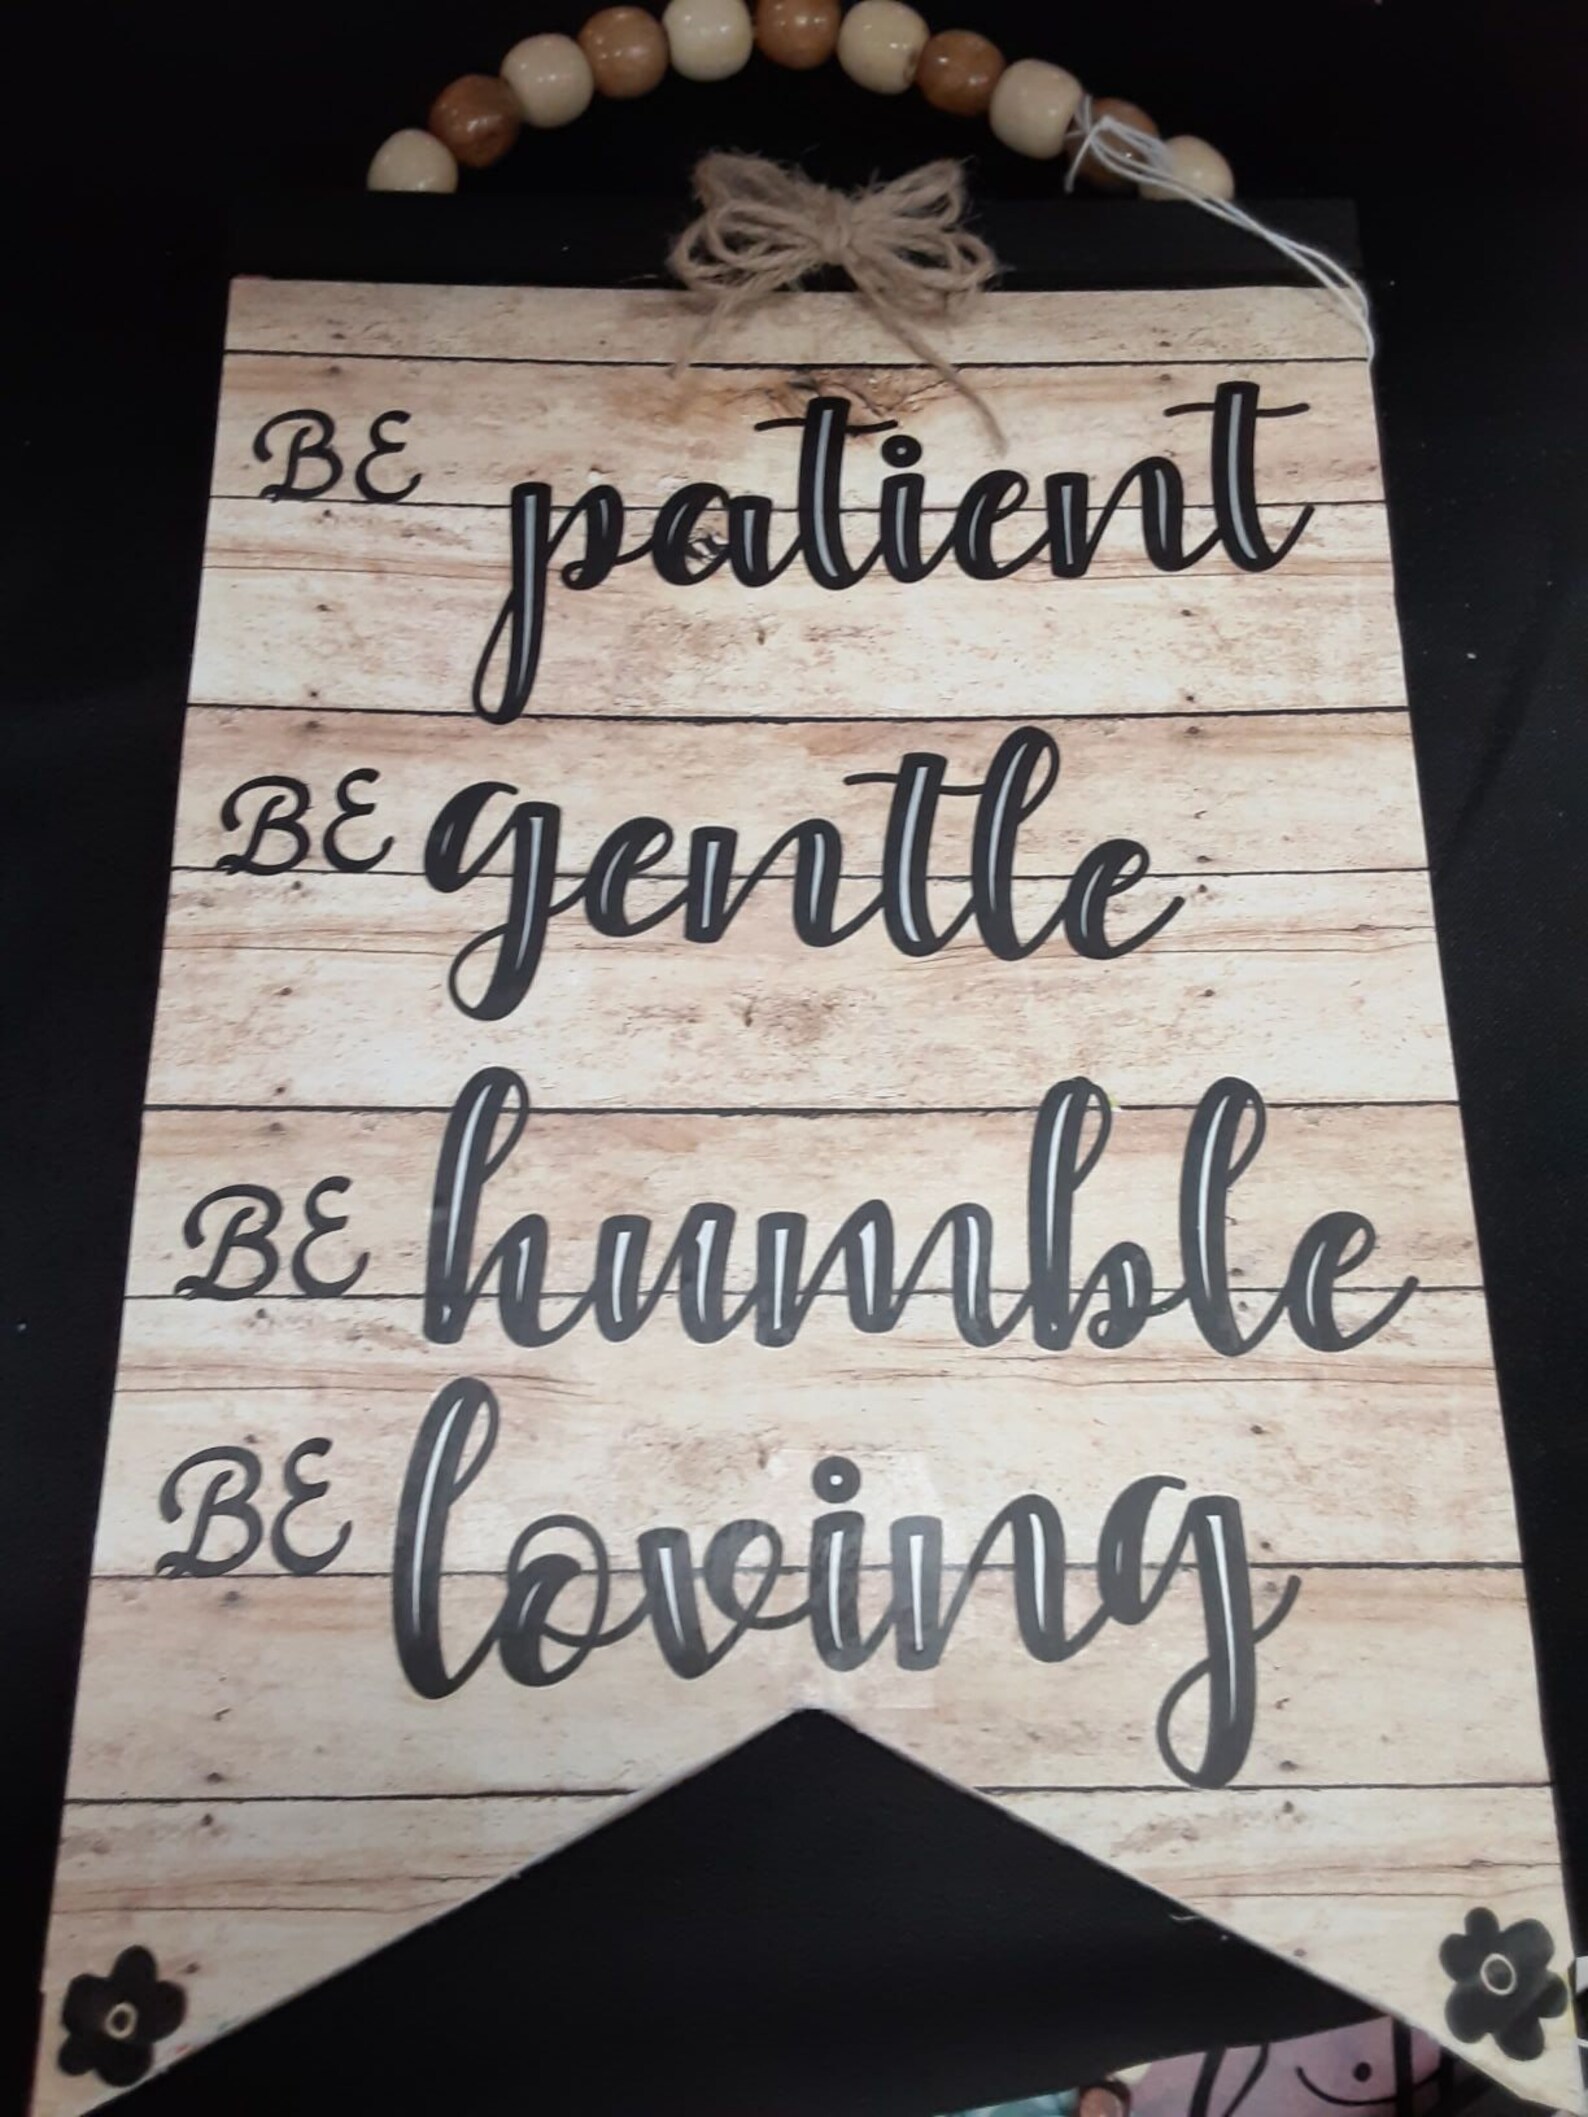 BE patient
BE gentle
BE humble
BE loving